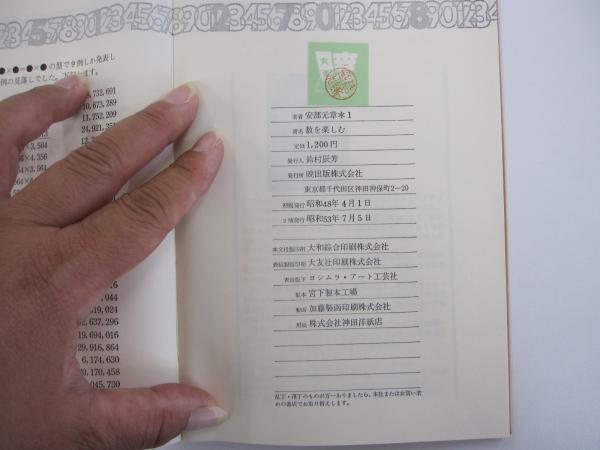 ●×●=●×● の型で9例しか発表し
例の見落しでした。下記します。
,732,691
10,673,289
11,752,209
24,921,35
×3,564
64×4,356
著者 安部元章＊1
書名 数を楽しむ
定価 1,200円
発行人 鈴村辰芳
発行所 暁出版株式会社
東京都千代田区神田神保町2—20
初版発行 昭和48年4月1日
2版発行 昭和53年7月5日
本文社製印刷 大和綜合印刷株式会社
表紙製函印刷 大友社印刷株式会社
表紙版下 ヨシムラ・アート工芸社
製本 宮下製本工場
製函 加藤製函印刷株式会社
用紙 株式会社神田洋紙店
6
,044
819,024
62,637,296
19,694,016
29,916,864
6,174,630
20,170,458
,045,730
乱丁・落丁のものが万一ありましたら、本社またはお買い求
めの書店でお取り替えします。